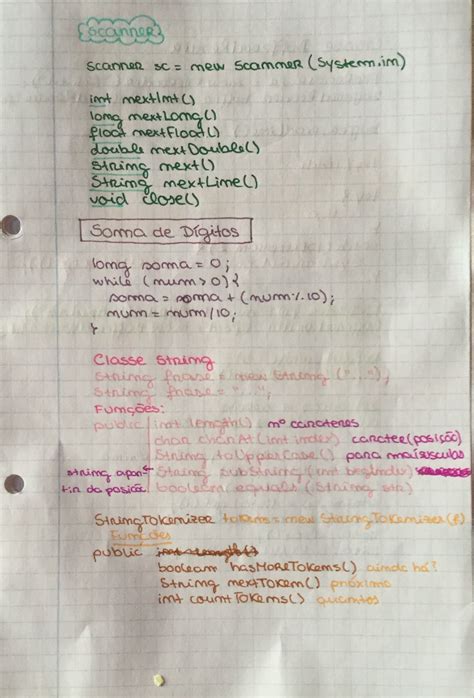 Scanner
Scanner sc = new Scanner (System.in)
int nextInt()
long nextLong()
float nextFload()
double nextDouble()
String next()
String nextLine()
void close()
Soma de Dígitos
long soma = 0;
while (num > 0) {
soma = soma + (num % 10);
num = num / 10;
}
Classe String
String frase = new String ("...");
String frase = "...";
Funções:
public int length() nº caracteres
char charAt (int index) caractee (posição)
String toUpperCase() para maiúsculas
string apar- String subString (int beginIndex)
tir da posição boolean equals (String str)
StringTokenizer tokens = new StringTokenizer(f)
Funções
public int length()
boolean hasMoreTokens() ainda há?
String nextToken() próximo
int countTokens() quantos